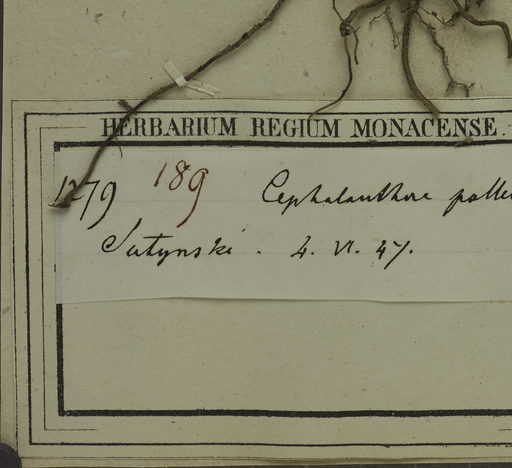 HERBARIUM REGIUM MONACENSE.
1279 189 Cephalanthera palle
Sutynski. 4. VI. 47.